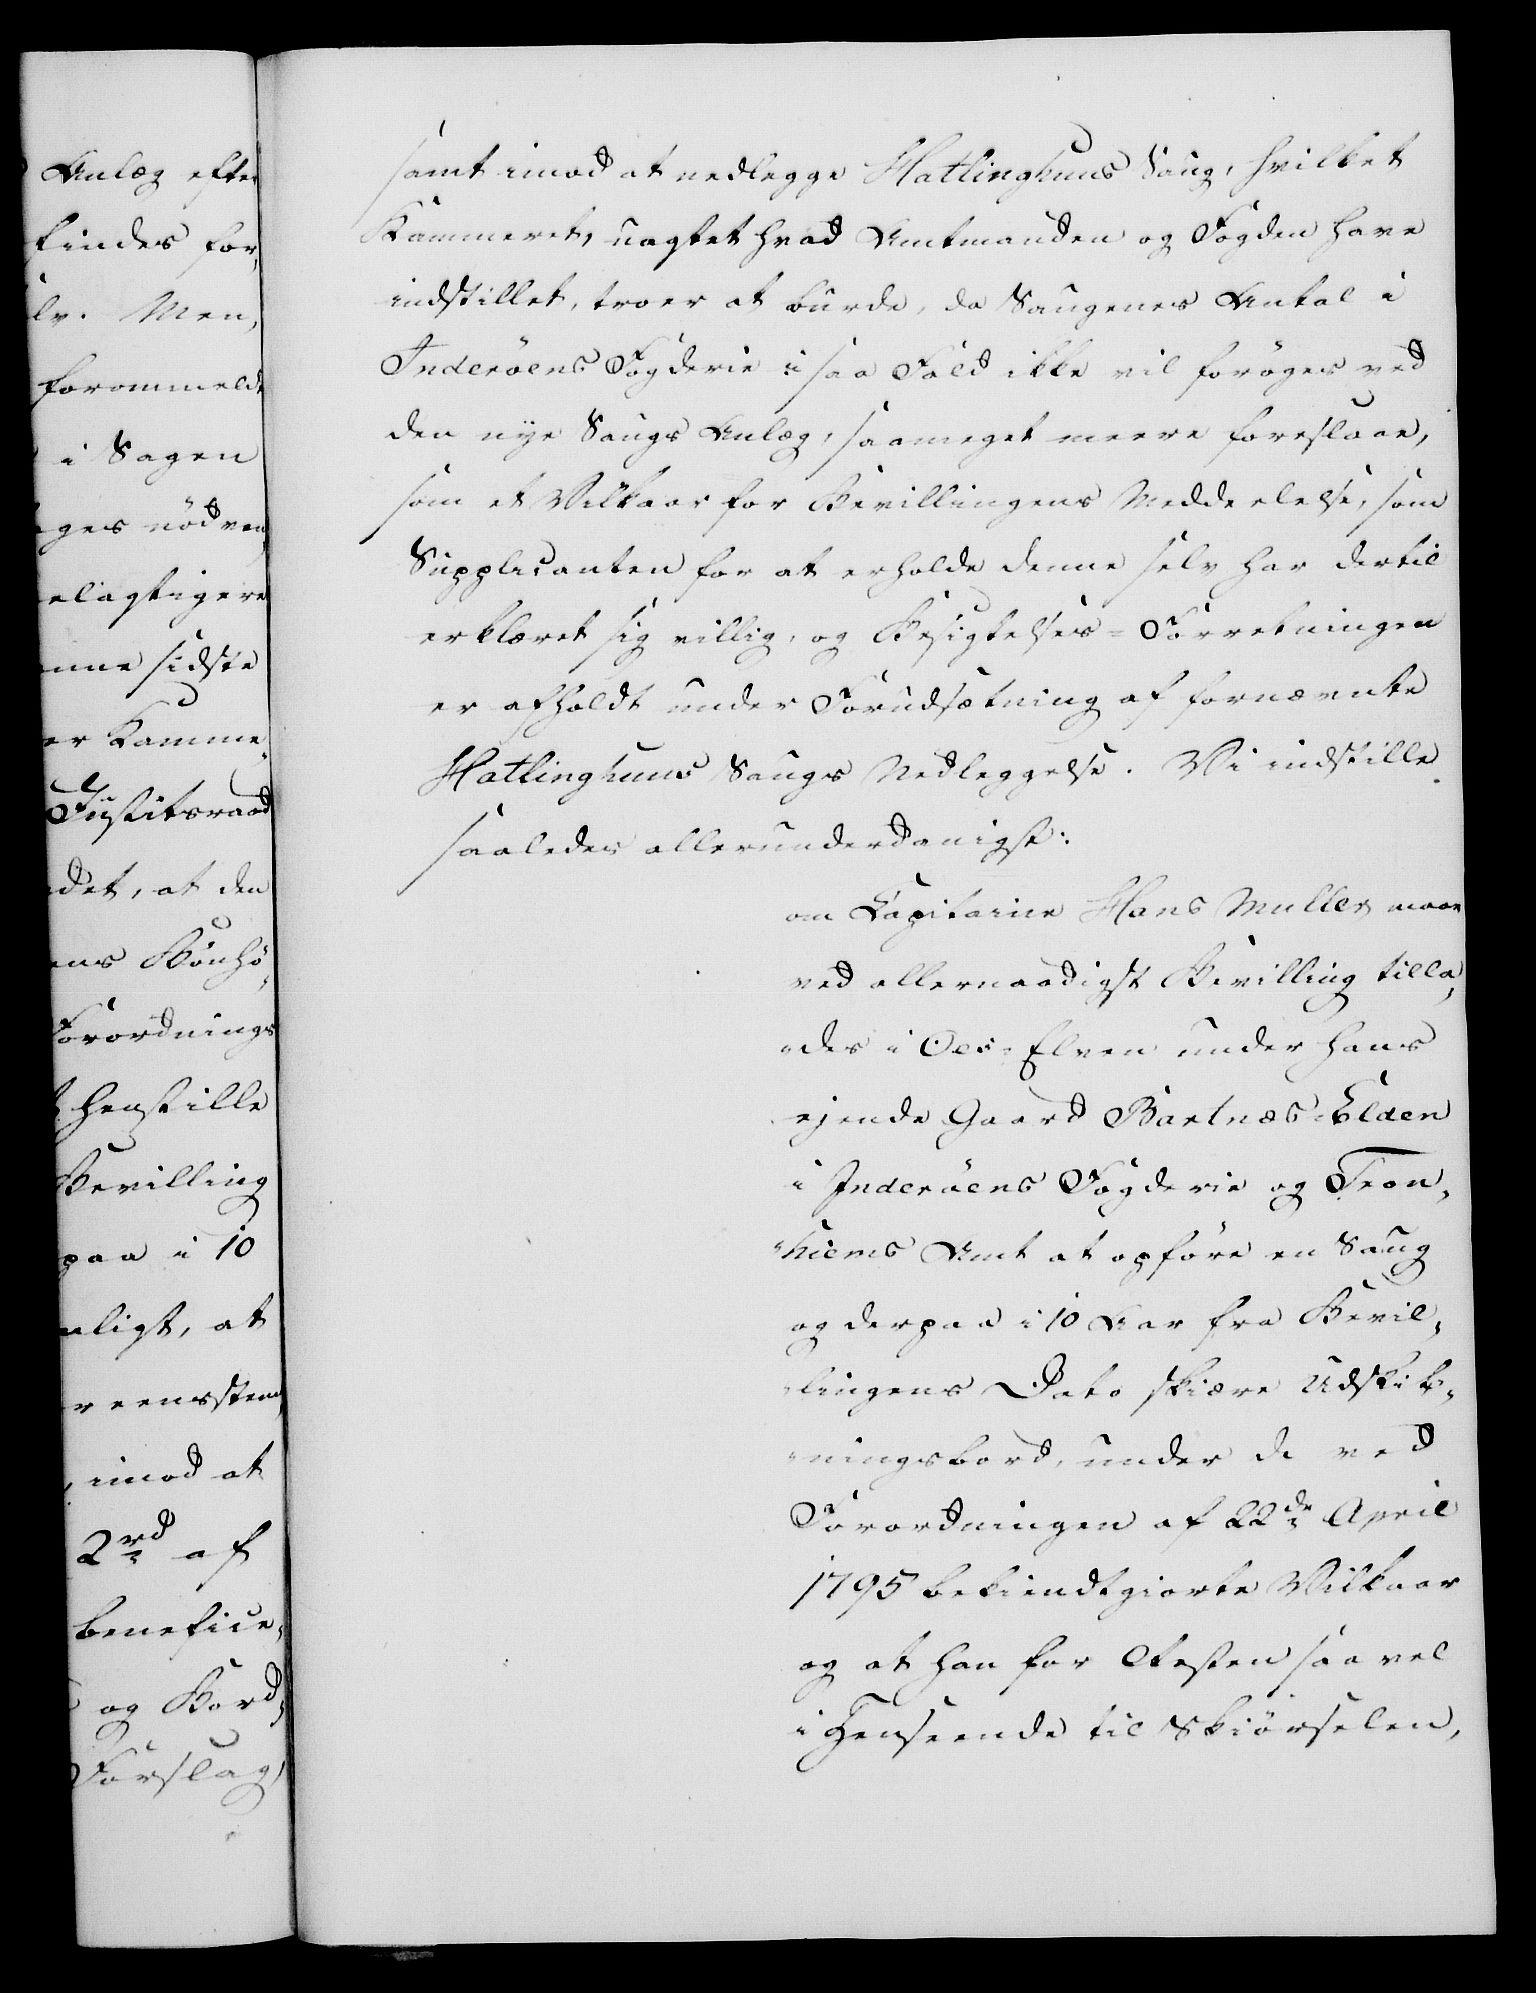 Anlæg efter
findes for,
lv. Men,
forommeldt
i Sagen
ges nödven,
elagtigere
nne sidste
er Kamme,
Justitsraad
det, at den
ens Bönhö,
Forordnings
henstille
Bevilling
paa i 10
nligt, at
r eensstem,
, imod at
2rd af
benefice,
og Bord,
Forslag,
samt imod at nedlegge Hatlinghuus Saug, hvilket
Kammeret, uagtet hvad Amtmanden og Fogden have
indstillet, troer at burde, da Saugenes Antal i
Inderöens Fogderie i saa Fald ikke vil foröges ved
den nye Saugs Anlæg, saameget meere foreslaae,
som et Vilkaar for Bevillingens Meddelelse, som
Supplicanten for at erholde denne selv har dertil
erklæret sig villig, og Besigtelses-Forretningen
er afholdt under Forudsætning af fornævnte
Hatlinghuus Saugs Nedleggelse. Vi indstille
saaledes allerunderdanigst:
om Capitaine Hans Muller maae
ved allernaadigst Bevilling tilla,
des i Oes-Elven under hans
ejende Gaard Bartnæs-Elden
i Inderöens Fogderie og Tron,
hiems Amt at opföre en Saug
og derpaa i 10 Aar fra Bevil,
lingens Dato skiære Udskib,
ningsbord, under de ved
Forordningen af 22de April
1795 bekiendtgiorte Vilkaar
og at han for Resten saavel
i Henseende til Skiörselen,